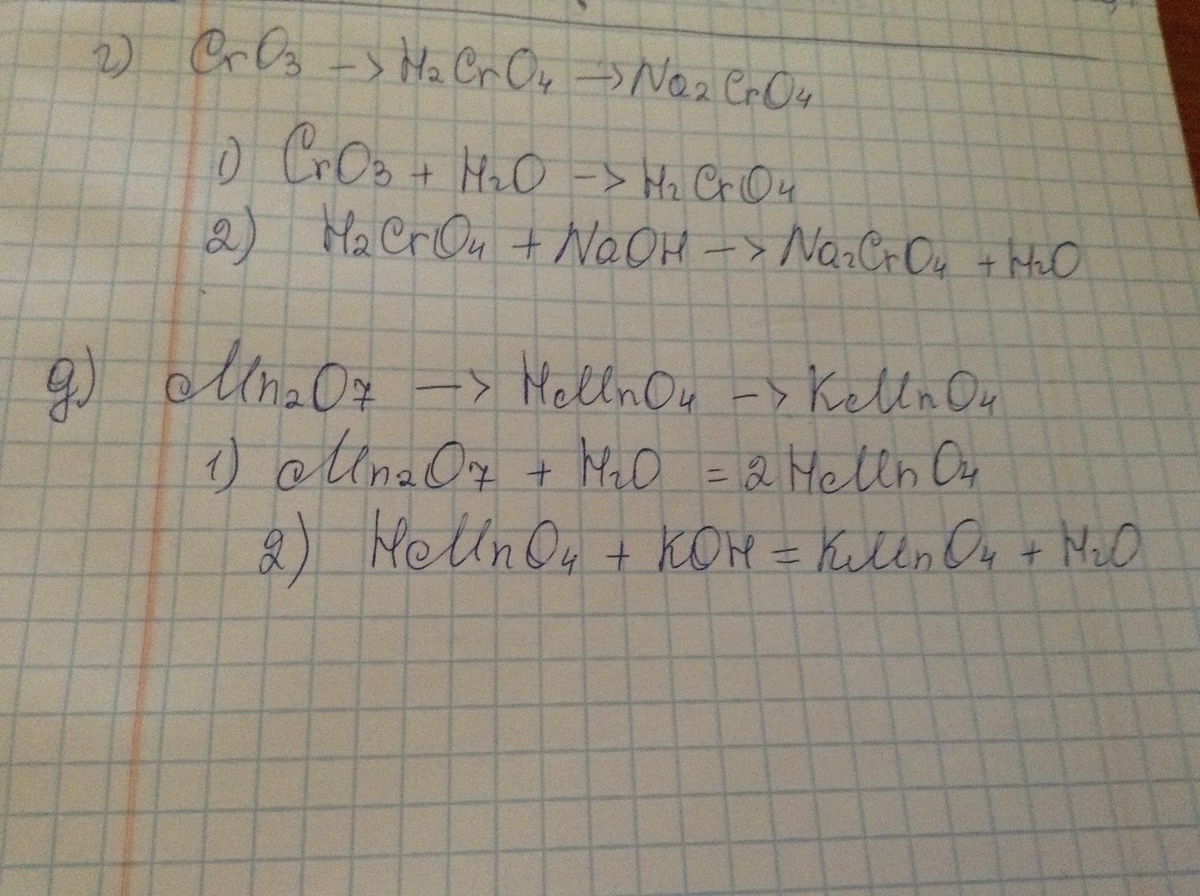 г) CrO3 -> H2CrO4 -> Na2CrO4
1) CrO3 + H2O -> H2CrO4
2) H2CrO4 + NaOH -> Na2CrO4 + H2O
д) Mn2O7 -> HMnO4 -> KMnO4
1) Mn2O7 + H2O = 2HMnO4
2) HMnO4 + KOH = KMnO4 + H2O